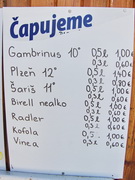 Čapujeme
Gambrinus 10° 0,5l 1,00€
0,3l 0,60€
Plzeň 12° 0,5l 1,40€
0,3l 0,80€
Šariš 11° 0,5l 1,00€
0,3l 0,60€
Birell nealko 0,5l 1,00€
0,3l 0,60€
Radler 0,5l 1,00€
0,3l 0,60€
Kofola 0,5l 1,00€
0,3l 0,60€
Vinea 0,3l 0,60€